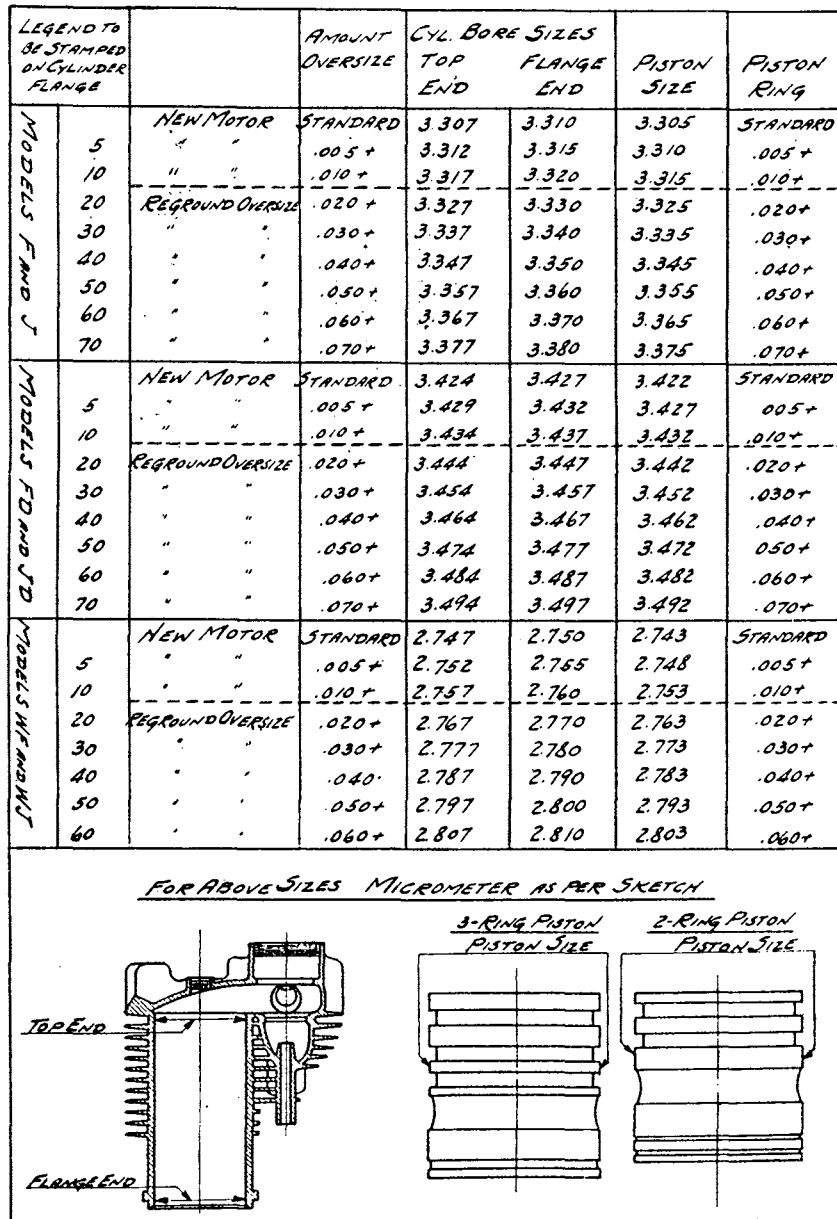 LEGEND TO BE STAMPED ON CYLINDER FLANGE
AMOUNT OVERSIZE
CYL. BORE SIZES
TOP END
FLANGE END
PISTON SIZE
PISTON RING
MODELS F AND J
NEW MOTOR STANDARD 3.307 3.310 3.305 STANDARD
5 " " .005+ 3.312 3.315 3.310 .005+
10 " " .010+ 3.317 3.320 3.315 .010+
20 REGROUND OVERSIZE .020+ 3.327 3.330 3.325 .020+
30 " " .030+ 3.337 3.340 3.335 .030+
40 " " .040+ 3.347 3.350 3.345 .040+
50 " " .050+ 3.357 3.360 3.355 .050+
60 " " .060+ 3.367 3.370 3.365 .060+
70 " " .070+ 3.377 3.380 3.375 .070+
MODELS FD AND JD
NEW MOTOR STANDARD 3.424 3.427 3.422 STANDARD
5 " " .005+ 3.429 3.432 3.427 005+
10 " " .010+ 3.434 3.437 3.432 .010+
20 REGROUND OVERSIZE .020+ 3.444 3.447 3.442 .020+
30 " " .030+ 3.454 3.457 3.452 .030+
40 " " .040+ 3.464 3.467 3.462 .040+
50 " " .050+ 3.474 3.477 3.472 050+
60 " " .060+ 3.484 3.487 3.482 .060+
70 " " .070+ 3.494 3.497 3.492 .070+
MODELS WF AND WJ
NEW MOTOR STANDARD 2.747 2.750 2.743 STANDARD
5 " " .005+ 2.752 2.755 2.748 .005+
10 " " .010+ 2.757 2.760 2.753 .010+
20 REGROUND OVERSIZE .020+ 2.767 2.770 2.763 .020+
30 " " .030+ 2.777 2.780 2.773 .030+
40 " " .040. 2.787 2.790 2.783 .040+
50 " " .050+ 2.797 2.800 2.793 .050+
60 " " .060+ 2.807 2.810 2.803 .060+
FOR ABOVE SIZES MICROMETER AS PER SKETCH
3-RING PISTON
PISTON SIZE
2-RING PISTON
PISTON SIZE
TOP END
FLANGE END